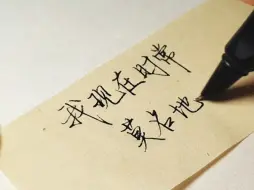 我现在时常
莫名地